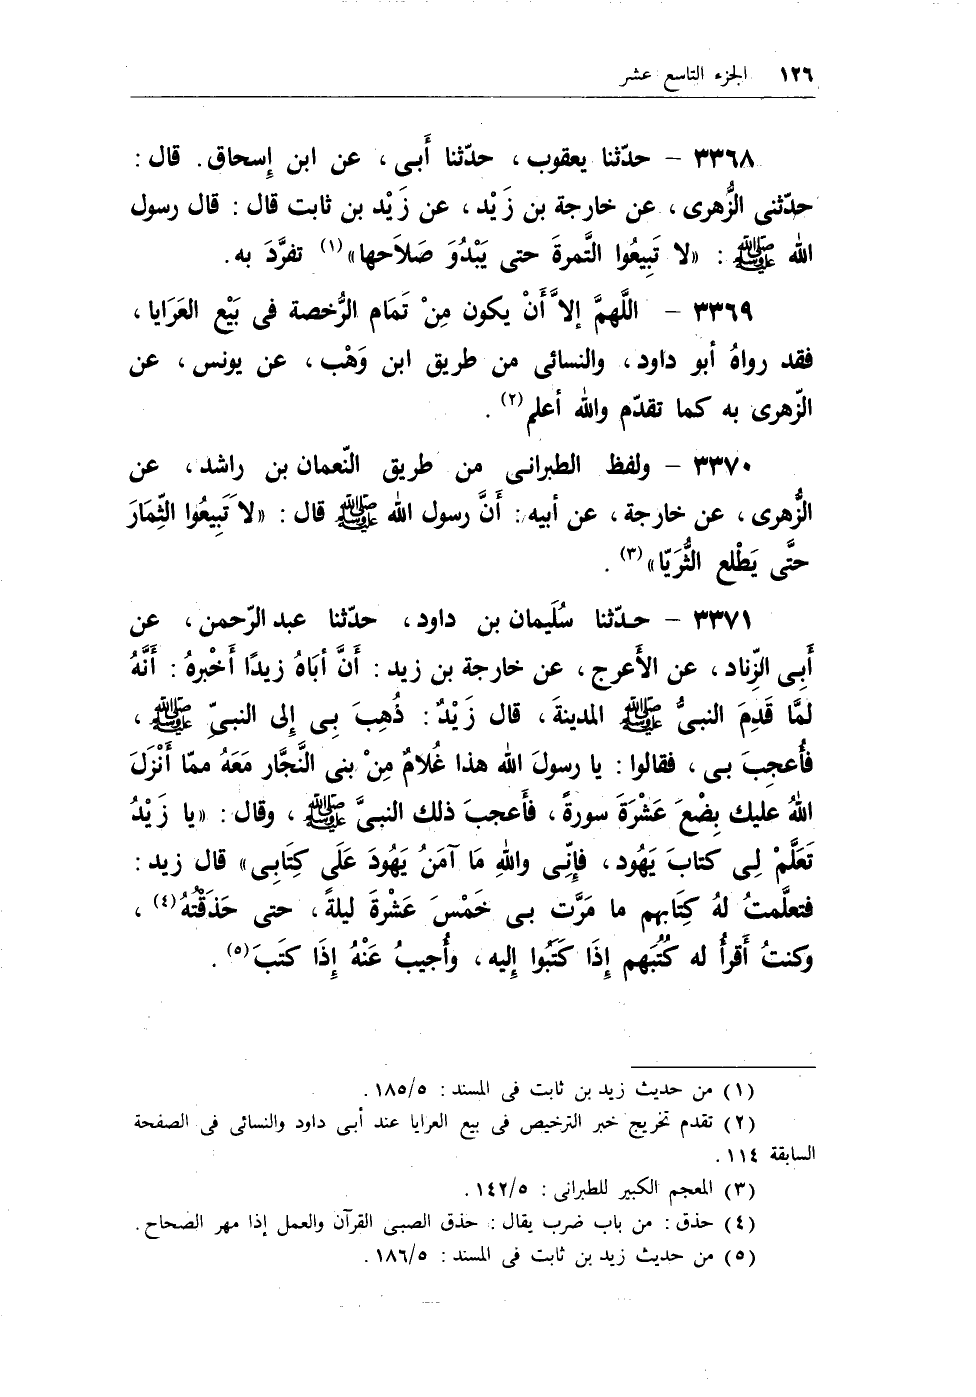 ١٢٦ الجزء التاسع عشر
٣٣٦٨ – حدّثنا يعقوب، حدّثنا أَبى، عن ابن إِسحاق. قال:
حدّثنى الزُّهرى، عن خارجة بن زَيْد، عن زَيْد بن ثابت قال: قال رسول
الله ﷺ: «لا تَبِيعُوا التَّمرةَ حتى يَبْدُوَ صَلاَحها»(١) تفرَّدَ به.
٣٣٦٩ – اللَّهمَّ إلاَّ أَنْ يكون مِنْ تَمَام الرُّخصة فى بَيْع العَرَايا،
فقد رواهُ أبو داود، والنسائى من طريق ابن وَهْب، عن يونس، عن
الزّهرى به كما تقدّم والله أعلم(٢).
٣٣٧٠ – ولفظ الطبرانى من طريق النّعمان بن راشد، عن
الزُّهرى، عن خارجة، عن أبيه: أَنَّ رسول الله ﷺ قال: «لاَ تَبِيعُوا الثِّمَارَ
حتَّى يَطْلع الثُّرَيّا»(٣).
٣٣٧١ – حدّثنا سُلَيمان بن داود، حدّثنا عبد الرّحمن، عن
أَبِى الزِّناد، عن الأَعرج، عن خارجة بن زيد: أَنَّ أبَاهُ زيدًا أَخْبرهُ: أَنَّهُ
لمَّا قَدِمَ النبىُّ ﷺ المدينةَ، قال زَيْدٌ: ذُهِبَ بِى إلى النبىِّ ﷺ،
فأُعجِبَ بى، فقالوا: يا رسولَ الله هذا غُلامٌ مِنْ بنى النَّجَّار مَعَهُ ممّا أَنْزَلَ
اللهُ عليك بِضْعَ عَشْرَةَ سورةً، فأَعجبَ ذلك النبىَّ ﷺ، وقال: «يا زَيْدُ
تَعَلَّمْ لِى كتابَ يَهُود، فإِنِّى واللهِ مَا آمَنُ يَهُودَ عَلَى كِتَابِى» قال زيد:
فتعلَّمتُ لهُ كِتَابهم ما مَرَّت بى خَمْسَ عَشْرةَ ليلةً، حتى حَذَقْتُهُ(٤)،
وكنتُ أَقرأُ له كُتُبَهم إِذَا كَتَبُوا إليه، وأُجيبُ عَنْهُ إِذَا كتَبَ(٥).
(١) من حديث زيد بن ثابت فى المسند: ١٨٥/٥.
(٢) تقدم تخريج خبر الترخيص فى بيع العرايا عند أبى داود والنسائى فى الصفحة
السابقة ١١٤.
(٣) المعجم الكبير للطبرانى: ١٤٢/٥.
(٤) حذق: من باب ضرب يقال: حذق الصبى القرآن والعمل إذا مهر الصحاح.
(٥) من حديث زيد بن ثابت فى المسند: ١٨٦/٥.